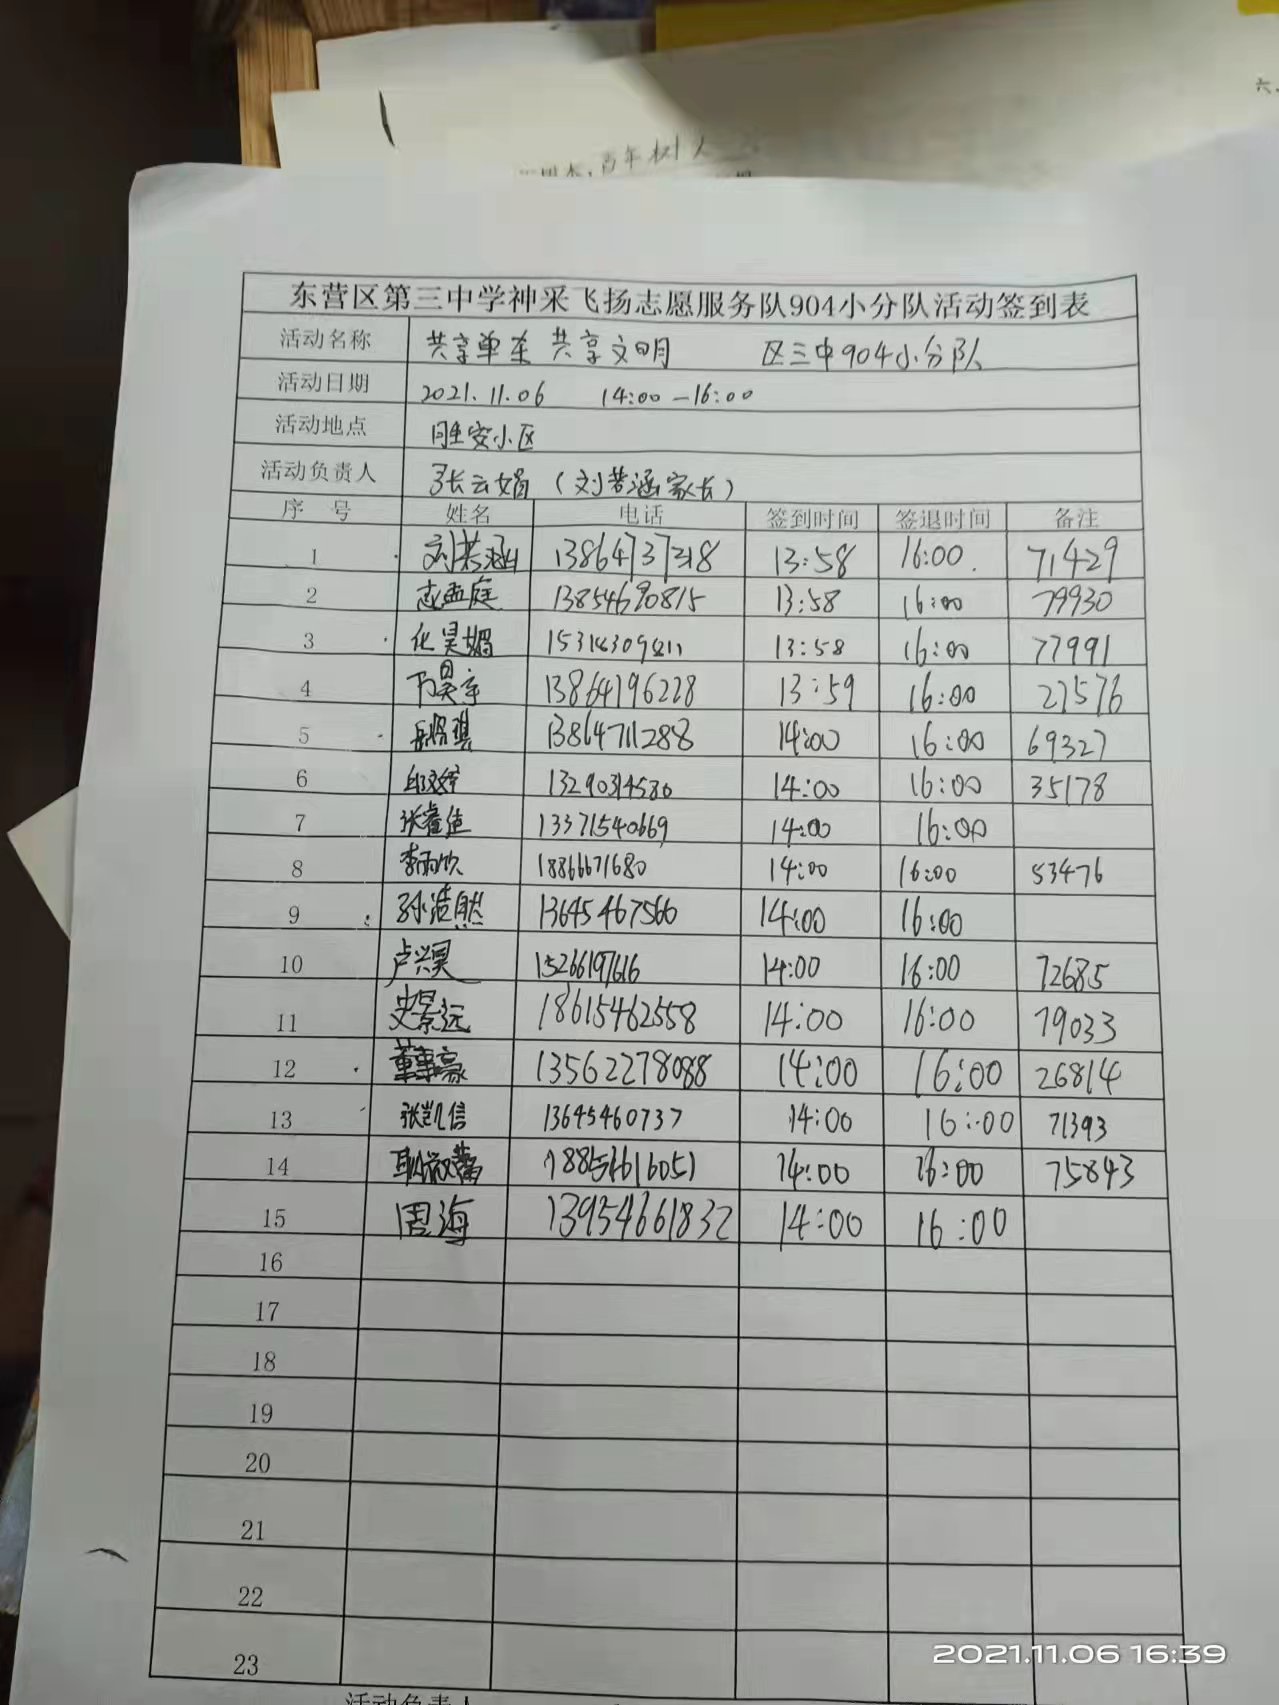 六、
百年树人
东营区第三中学神采飞扬志愿服务队904小分队活动签到表
活动名称 共享单车 共享文明 区三中904小分队
活动日期 2021.11.06 14:00—16:00
活动地点 胜安小区
活动负责人 张云娟（刘若涵家长）
序 号 姓名 电话 签到时间 签退时间 备注
1 刘若涵 13:58 16:00. 71429
2 孟庭 13854690815 13:58 16:00 79930
3 化昊嫺 13:58 16:00 77991
4 13864196228 13:59 16:00 27576
5 13864711288 14:00 16:00 69327
6 14:00 16:00 35178
7 张睿佳 13371540669 14:00 16:00
8 李雨欣 18866671680 14:00 16:00 53476
9 孙浩然 13645467566 14:00 16:00
10 卢兴昊 15266197616 14:00 16:00 72685
11 史景远 18615462558 14:00 16:00 79033
12 13562278088 14:00 16:00 26814
13 张凯信 13645460737 14:00 16:00 71393
14 14:00 16:00 75843
15 周海 13954661832 14:00 16:00
16
17
18
19
20
21
22
23
活动负责人
2021.11.06 16:39